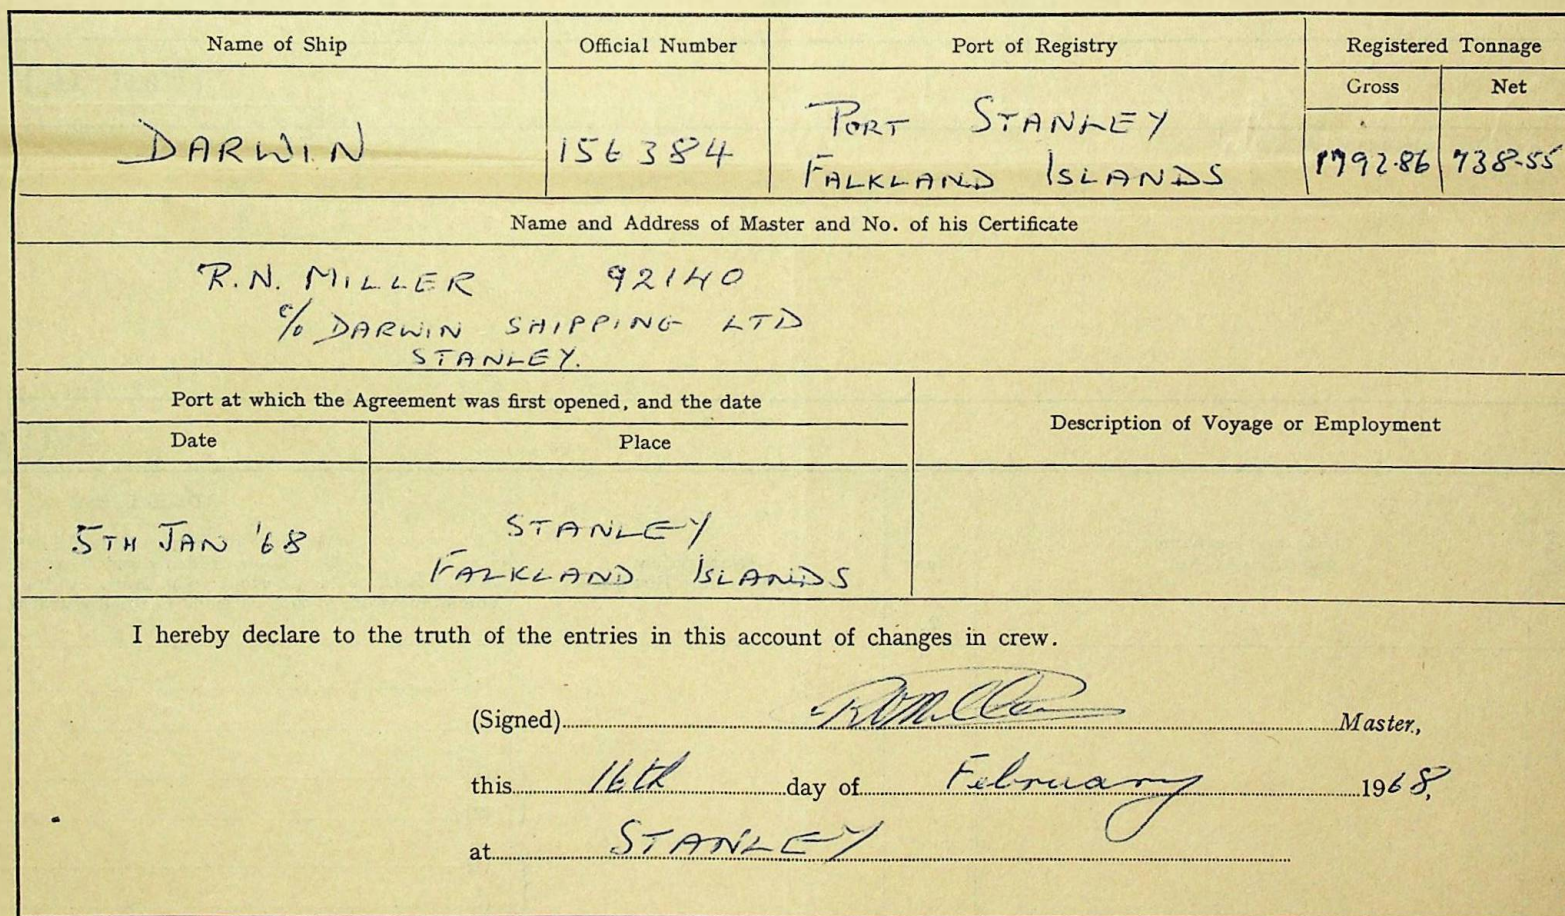 Name of Ship Official Number Port of Registry Registered Tonnage
Gross Net
DARWIN 156384 PORT STANLEY
FALKLAND ISLANDS 1792.86 738.55
Name and Address of Master and No. of his Certificate
R.N. MILLER 92140
c/o DARWIN SHIPPING LTD
STANLEY.
Port at which the Agreement was first opened, and the date
Description of Voyage or Employment
Date Place
5TH JAN '68 STANLEY
FALKLAND ISLANDS
I hereby declare to the truth of the entries in this account of changes in crew.
(Signed) RNMiller Master,
this 16th day of February 1968,
at STANLEY